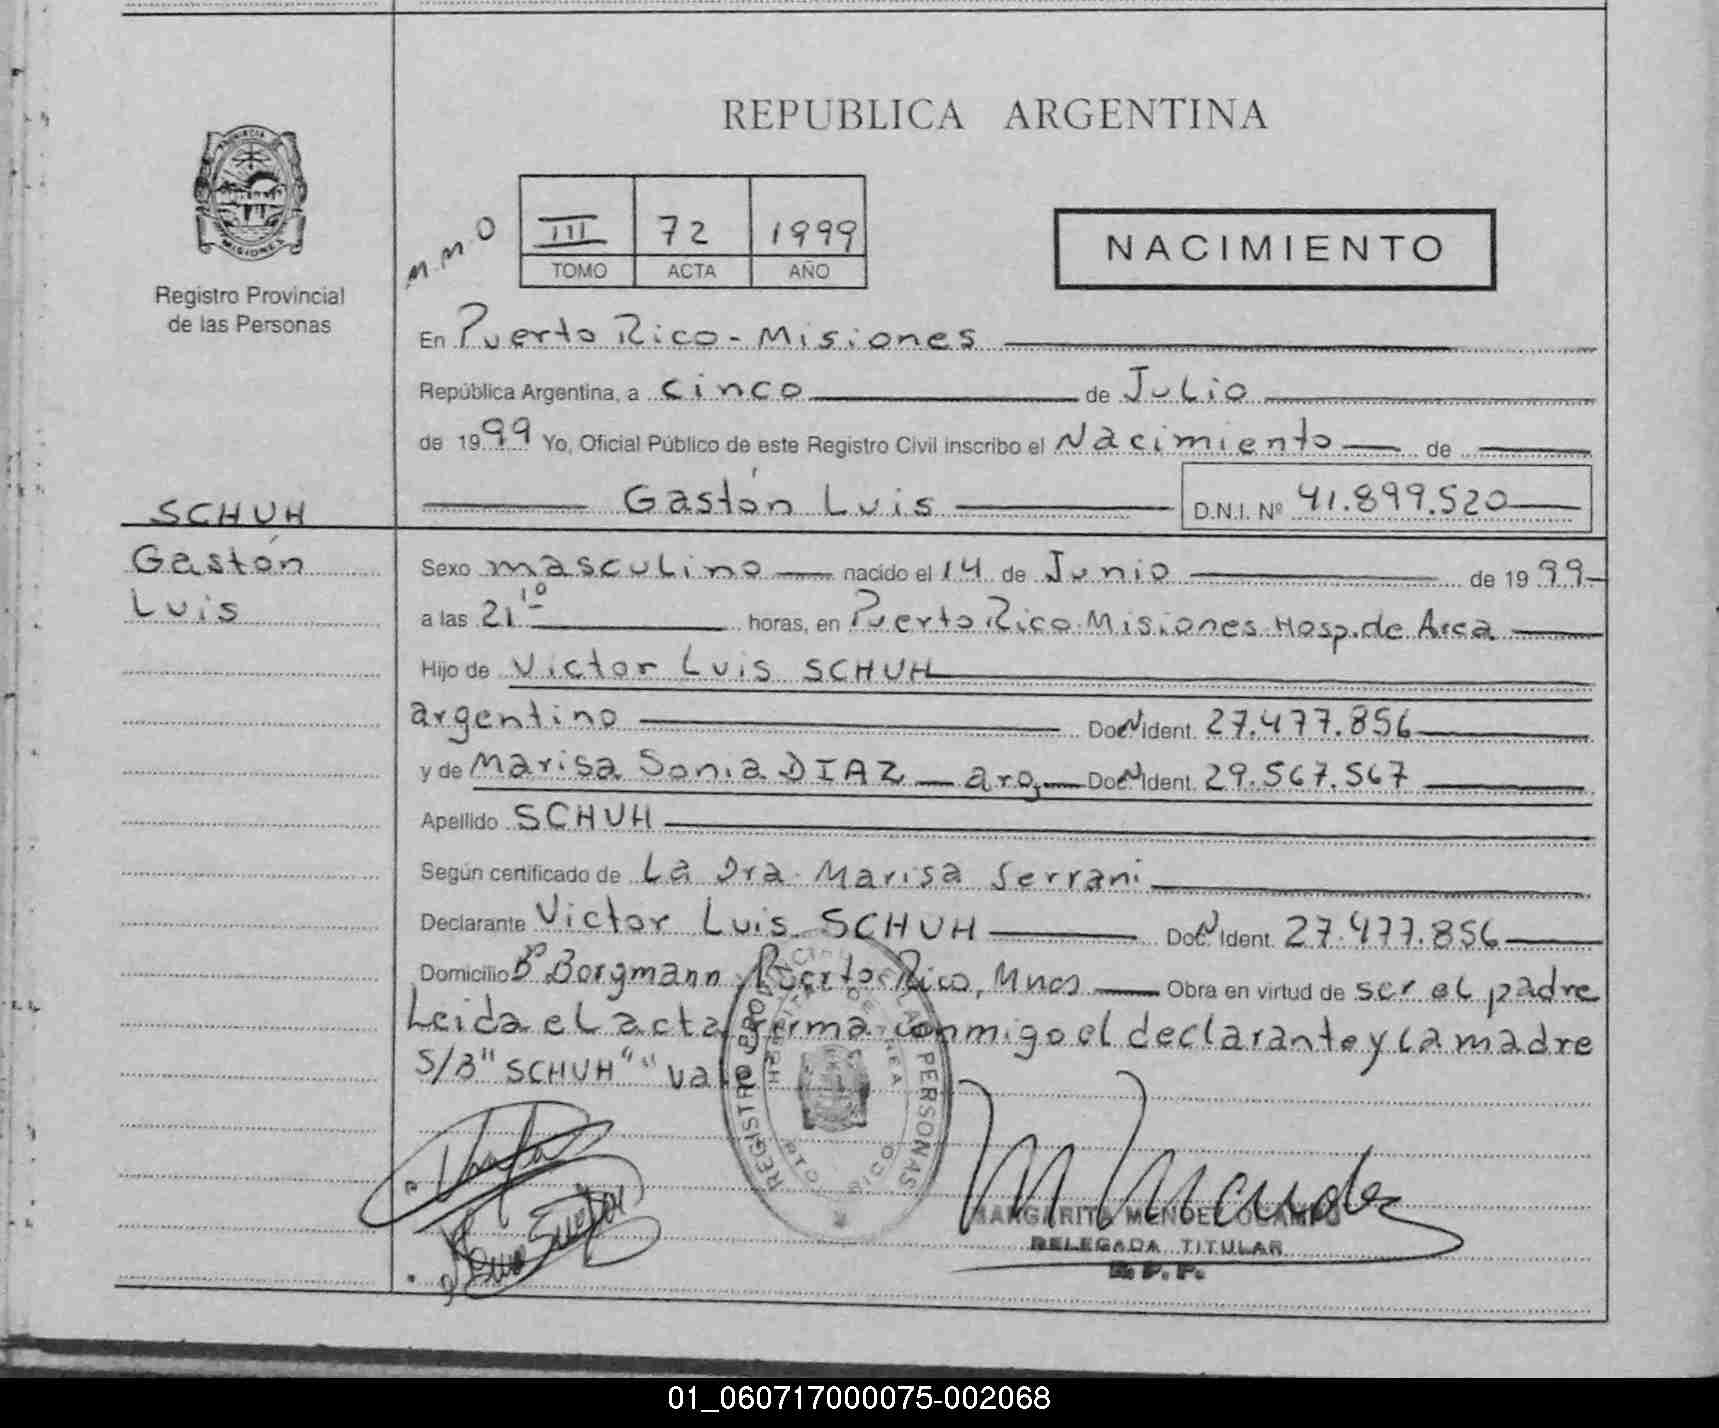 REPUBLICA ARGENTINA
PROVINCIA
MISIONES
Registro Provincial
de las Personas
M.M.O
III 72 1999
TOMO ACTA AÑO
NACIMIENTO
En Puerto Rico - Misiones
República Argentina, a cinco de Julio
de 1999 Yo, Oficial Público de este Registro Civil inscribo el Nacimiento de
Gastón Luis D.N.I. Nº 41.899.520
SCHUH
Gastón
Luis
Sexo masculino nacido el 14 de Junio de 1999
a las 21 10 horas, en Puerto Rico. Misiones Hosp. de Area
Hijo de Victor Luis SCHUH
argentino Doc. N Ident. 27.477.856
y de Marisa Sonia DIAZ arg. Doc. N Ident. 29.567.567
Apellido SCHUH
Según certificado de La Dra. Marisa Serrani
Declarante Victor Luis SCHUH Doc. N Ident. 27.477.856
Domicilio Bº Borgmann Puerto Rico, Mnes Obra en virtud de ser el padre
Leida el acta firma conmigo el declarante y la madre
S/B "SCHUH" "vale
REGISTRO PROVINCIAL PERSONAS
PTO RICO
MARGARITA MENDEZ OCAMPO
DELEGADA TITULAR
R. P. P.
01_060717000075-002068